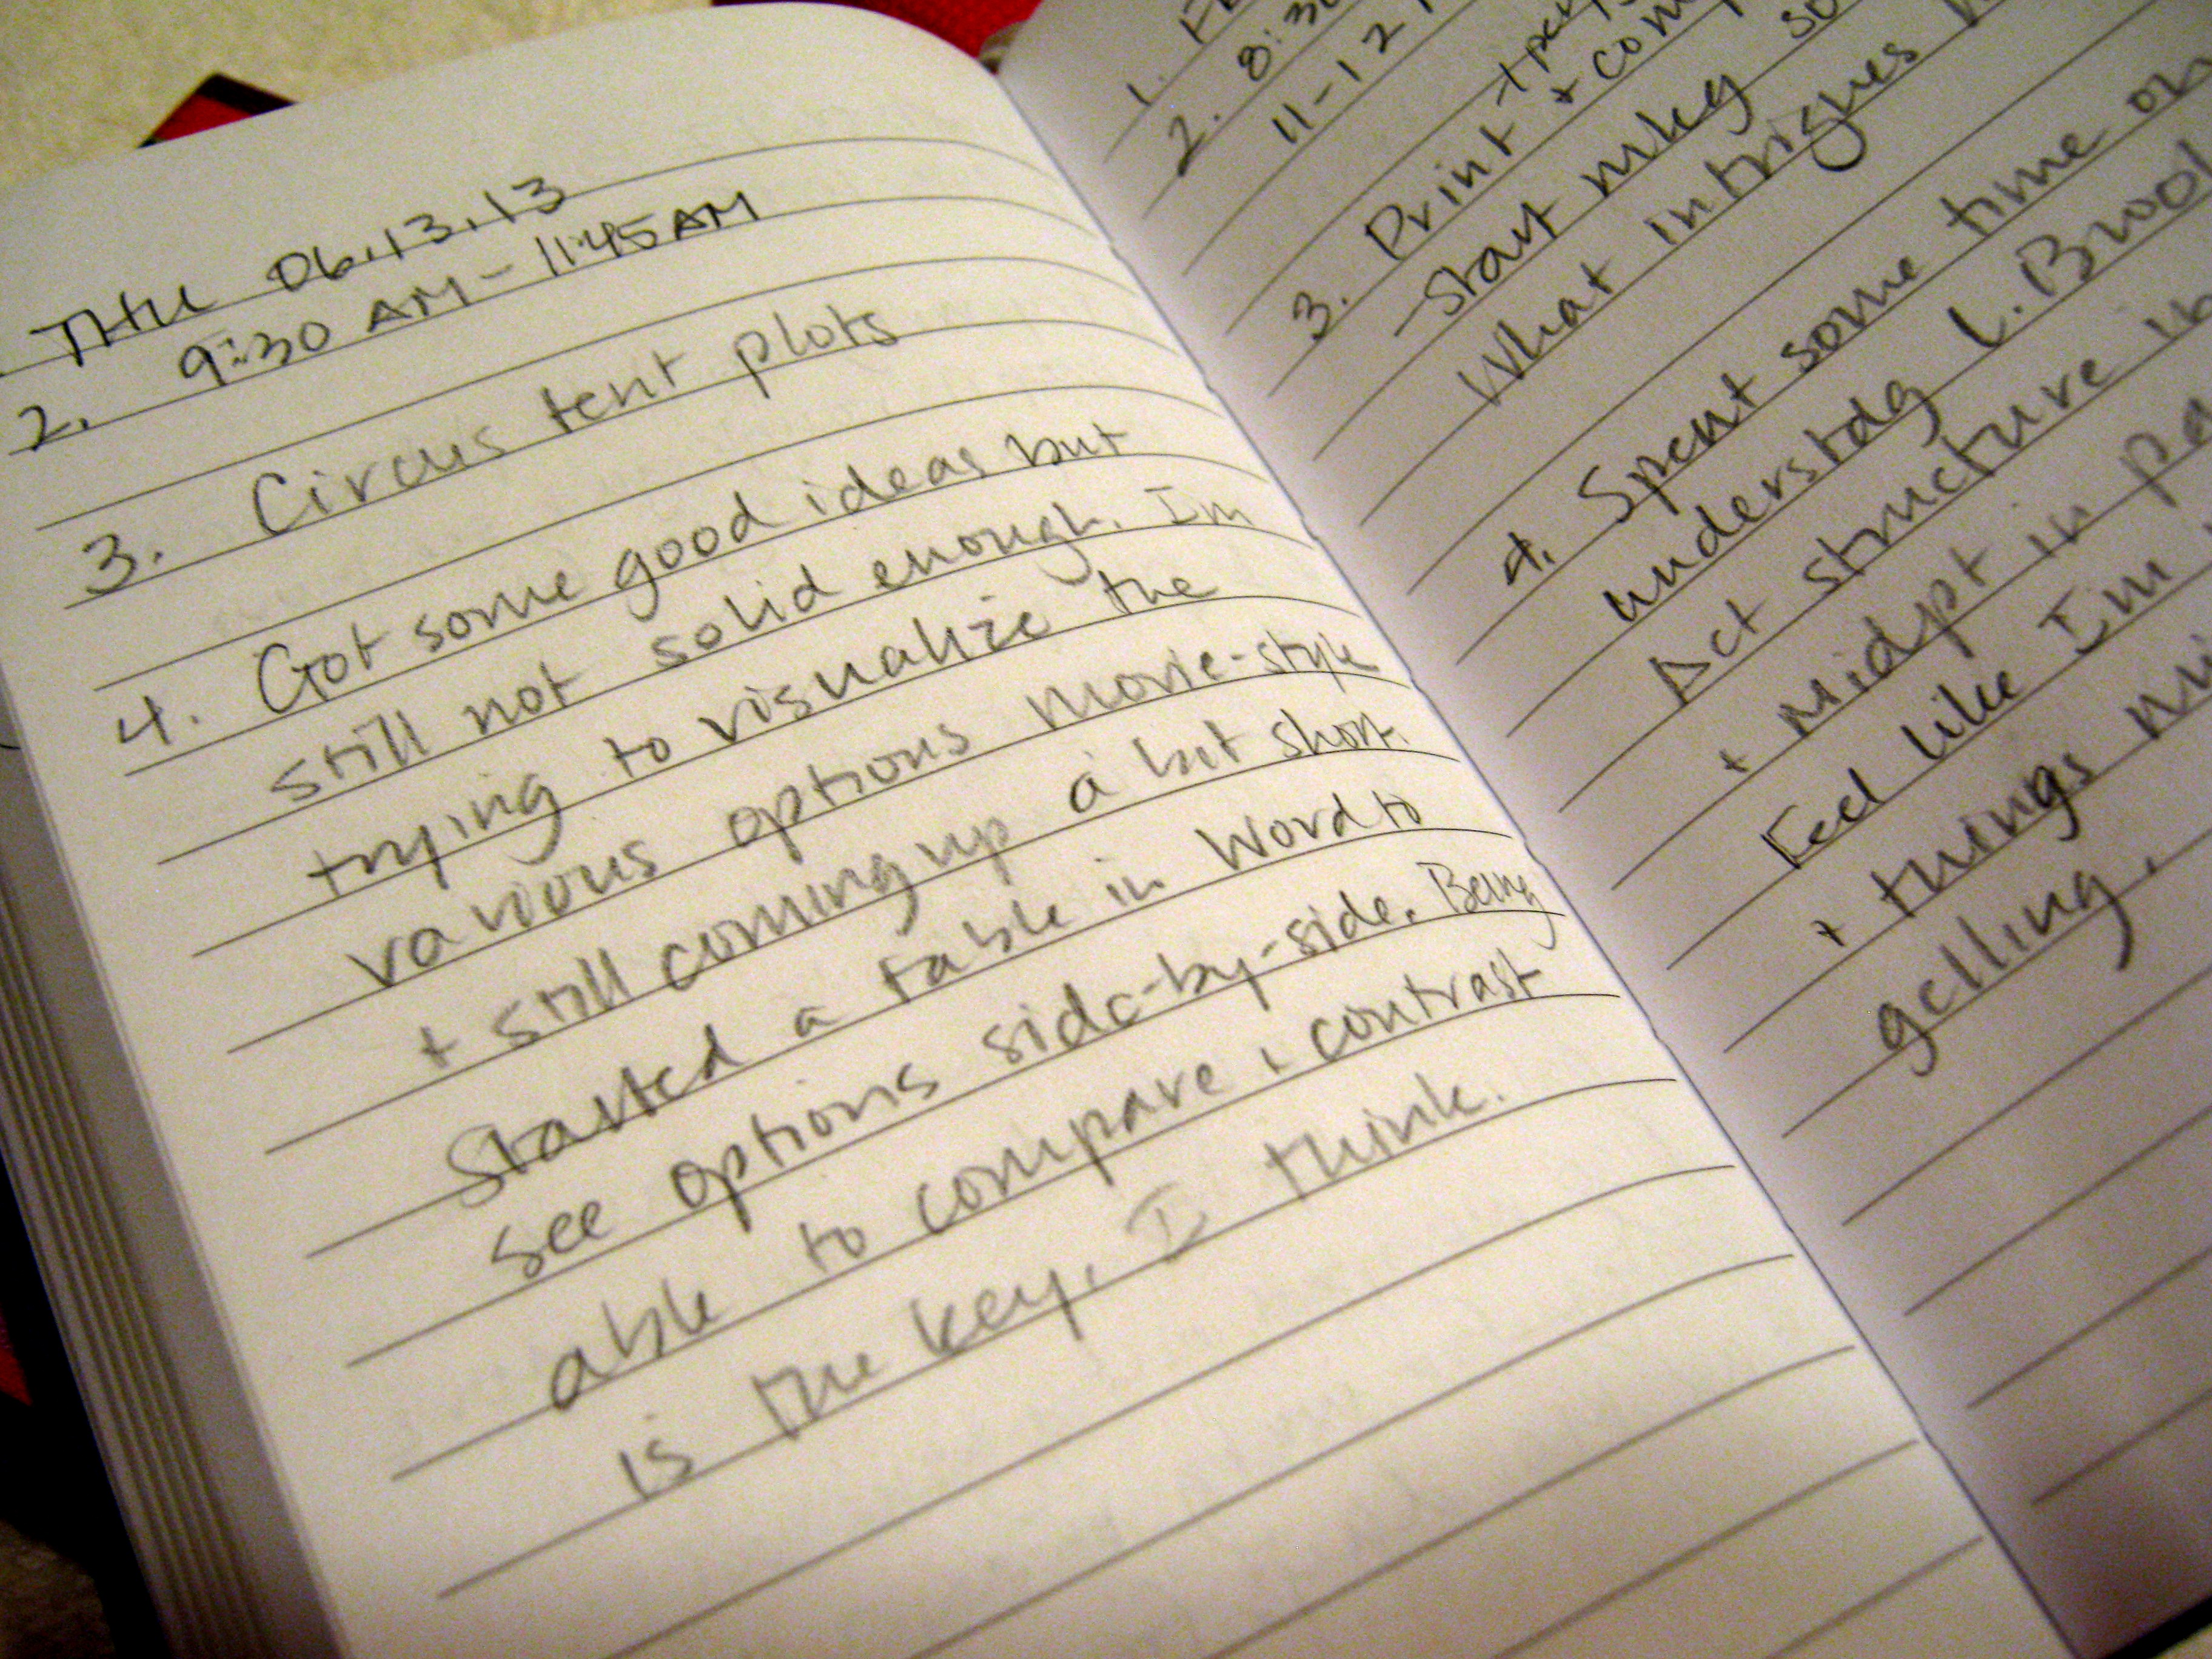 THU 06.13.13
2. 9:30 AM - 11:45 AM
3. Circus tent plots
4. Got some good ideas but
still not solid enough. Im
trying to visualize the
various options movie-style
+ still coming up a bit short.
Started a table in Word to
see options side-by-side. Being
able to compare + contrast
is the key, I think.
1.
2. 8:30
11-12
3. Print + com
- Start mkg so
What intrigues
4. Spent some time on
understdg L. Brook
Act structure in
+ midpt in pa
Feel like Im
+ things
gelling.